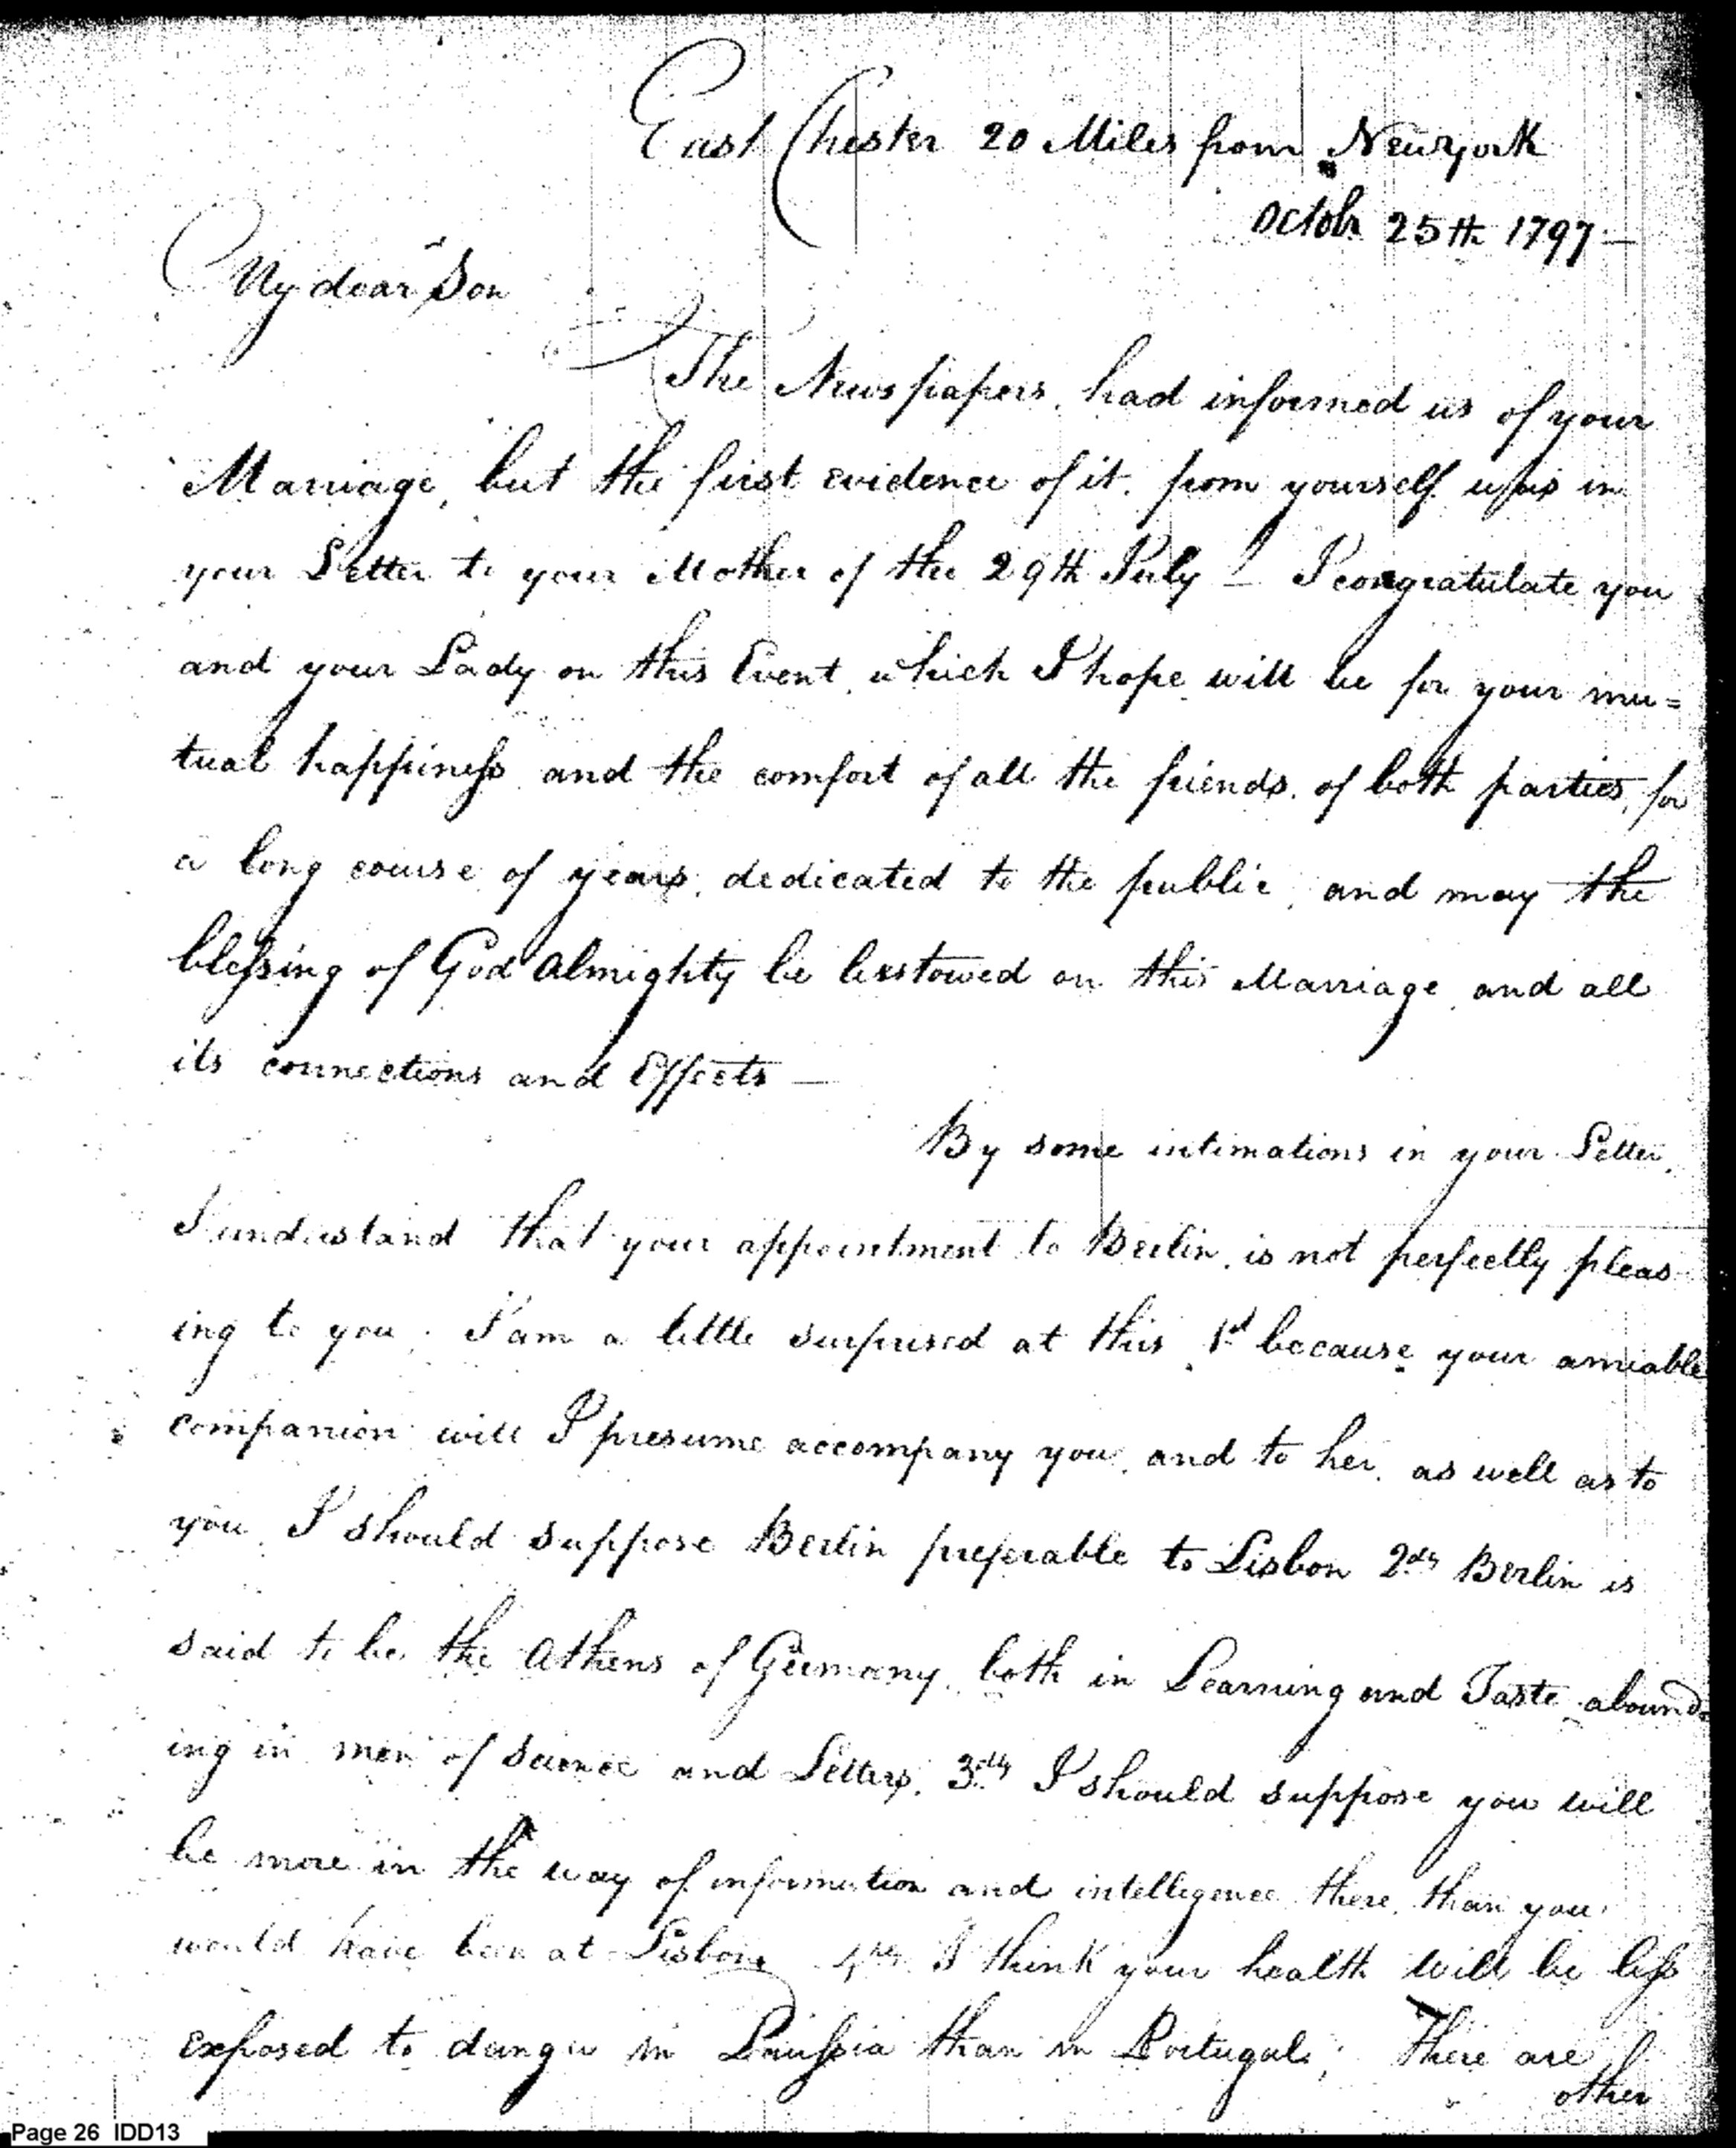 East Chester 20 Miles from Newyork
Octobr 25th 1797 —
My dear Son
The Newspapers, had informed us of your
Marriage, but the first evidence of it, from yourself was in
your Letter to your Mother of the 29th July — I congratulate you
and your Lady on this Event, which I hope will be for your mu=
tual happiness and the comfort of all the friends, of both parties, for
a long course of years, dedicated to the public, and may the
blessing of God Almighty be bestowed on this Marriage and all
its connections and Effects —
By some intimations in your Letter,
I understand that your appointment to Berlin, is not perfectly pleas
ing to you. I am a little surprised at this 1st because your amiable
companion will I presume accompany you, and to her, as well as to
you, I should suppose Berlin preferable to Lisbon 2dly Berlin is
said to be the Athens of Germany, both in Learning and Taste abound=
ing in men of Science and Letters, 3dly I should suppose you will
be more in the way of information and intelligence there, than you
would have been at Lisbon, 4thly I think your health will be less
exposed to danger in Prussia than in Portugal; There are
other
Page 26 IDD13